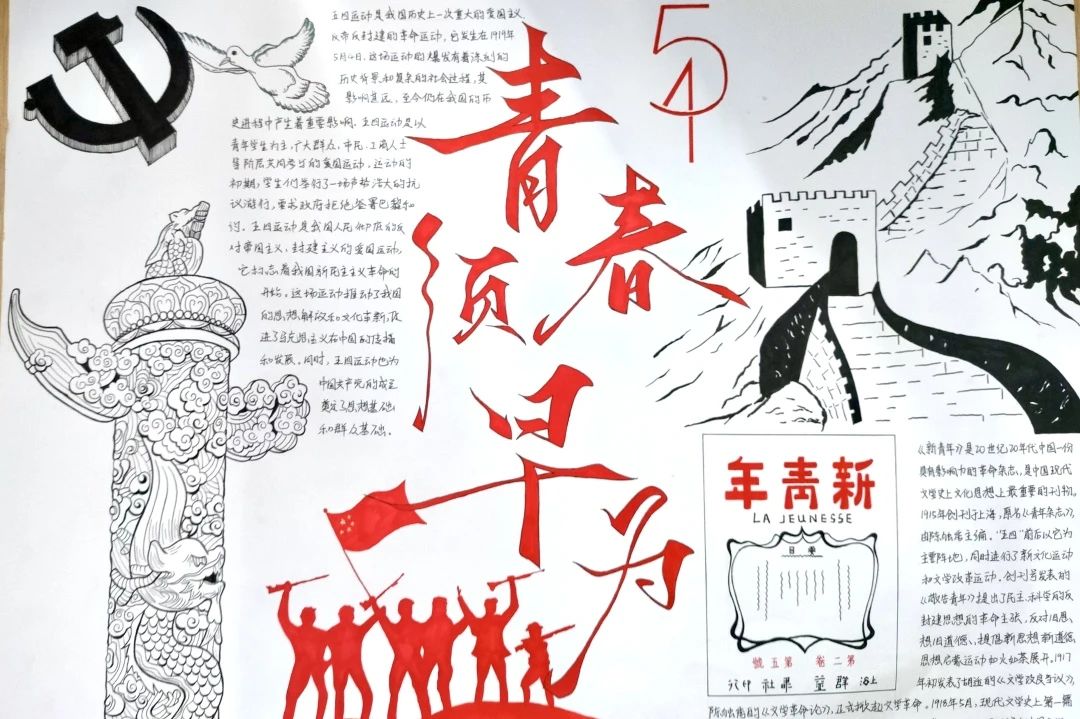 五四运动是我国历史上一次重大的爱国主义
反帝反封建的革命运动，它发生在1919年
5月4日，这场运动的爆发有着深刻的
历史背景和复杂的社会过程，其
影响深远，至今仍在我国的历
史进程中产生着重要影响。五四运动是以
青年学生为主，广大群众、市民、工商人士
等阶层共同参与的爱国运动，运动的
初期，学生们举行了一场声势浩大的抗
议游行，要求政府拒绝签署巴黎和
约。五四运动是我国人民彻底的反
对帝国主义、封建主义的爱国运动，
它标志着我国新民主主义革命的
开始。这场运动推动了我国
的思想解放和文化革新，促
进了马克思主义在中国的传播
和发展。同时，五四运动也为
中国共产党的成立
奠定了思想基础
和群众基础。
青春
须早为
54
新青年
LA JEUNESSE
目录
第二卷 第五号
上海 群益 书社 印行
《新青年》是20世纪20年代中国一份
具有影响力的革命杂志，是中国现代
文学史上文化思想上最重要的刊物。
1915年创刊于上海，原名《青年杂志》，
由陈独秀主编。"五四"前后以它为
主要阵地，同时进行了新文化运动
和文学改革运动。创刊号发表的
《敬告青年》提出了民主、科学的反
封建思想的革命主张，反对旧思
想旧道德、提倡新思想新道德，
思想启蒙运动如火如荼展开。1917
年初发表了胡适的《文学改良刍议》，
陈独秀的《文学革命论》，正式掀起文学革命。1918年5月，现代文学史上第一篇